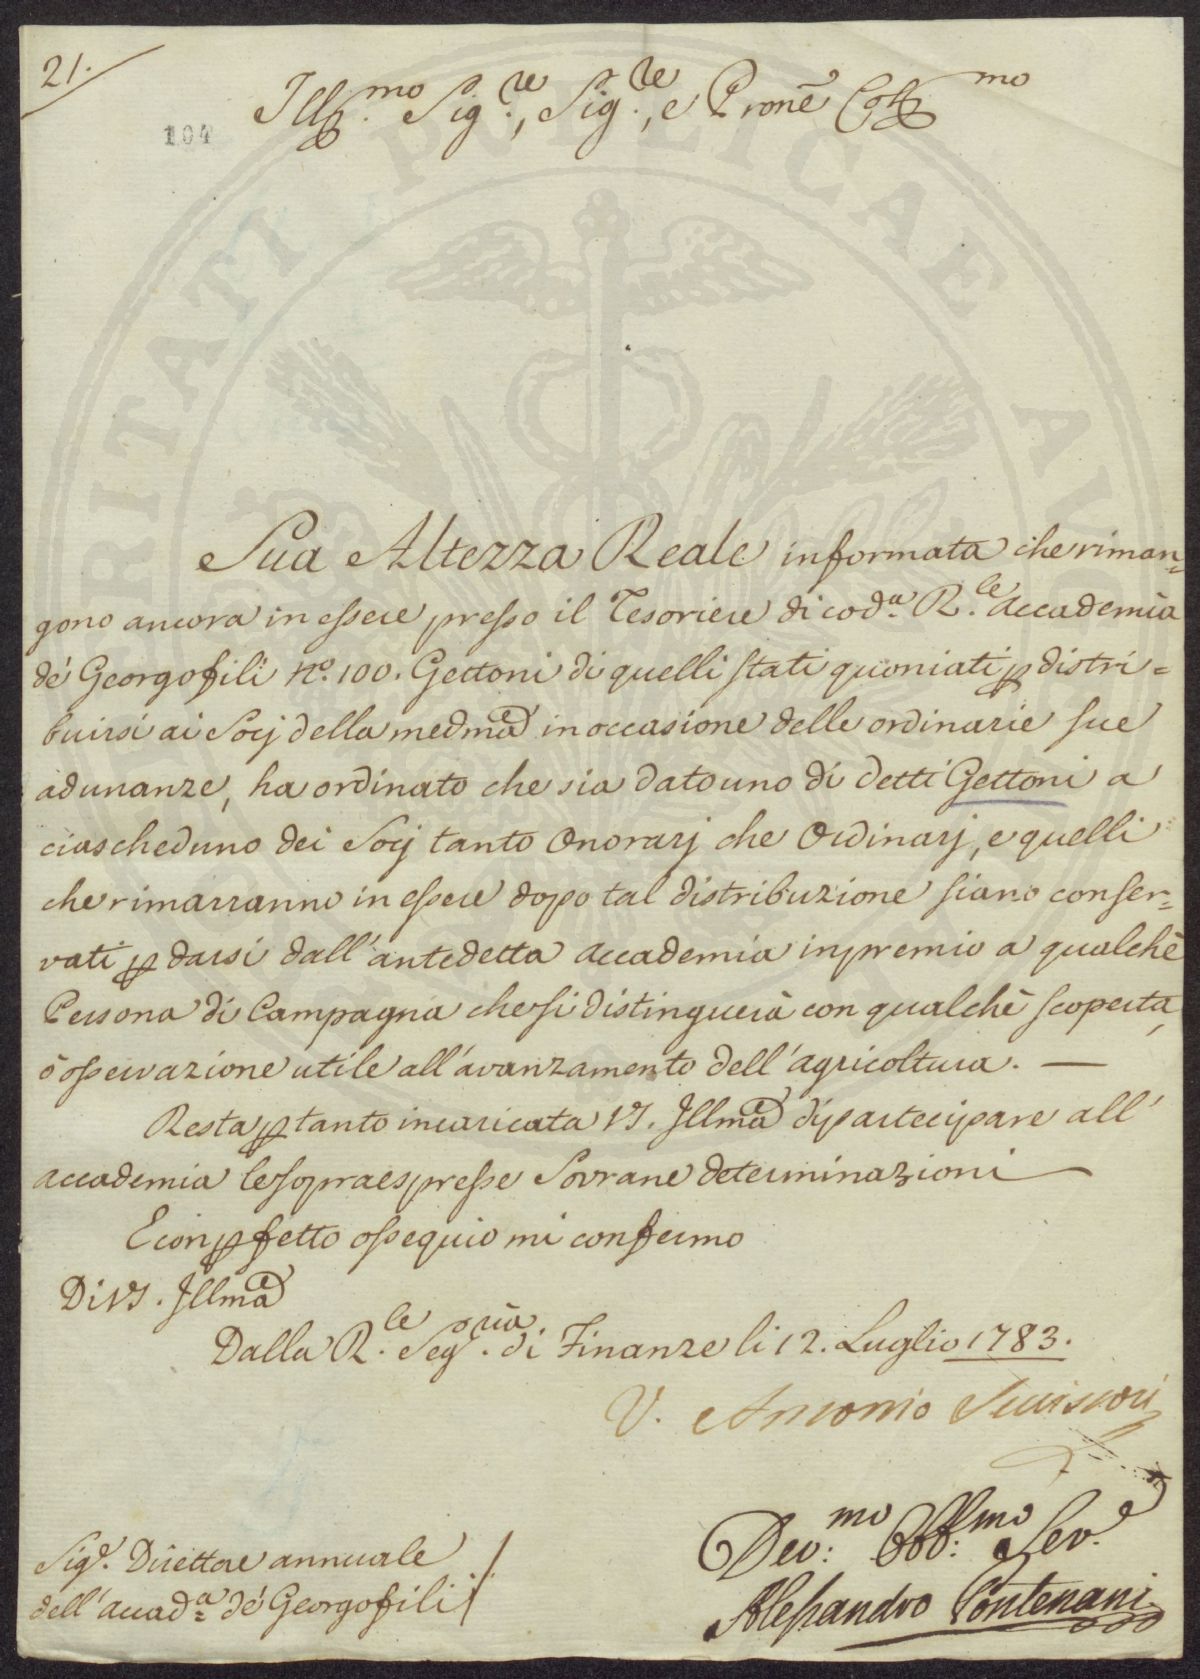 21.
104
Ill.mo Sig.re, Sig.re, e Prone Coll.mo
PUBLICAE
Sua Altezza Reale informata che riman=
gono ancora in essere presso il Tesoriere di cod.a R.le Accademia
de' Georgofili N.o 100. Gettoni di quelli stati quoniati p distri=
buirsi ai Socj della medma in occasione delle ordinarie sue
adunanze, ha ordinato che sia dato uno di detti Gettoni a
ciascheduno dei Socj tanto Onorarj che Ordinarj, e quelli
che rimarranno in essere dopo tal distribuzione siano conser=
vati p darsi dall'antedetta Accademia in premio a qualche
Persona di Campagna che si distinguerà con qualchè scoperta,
ò osservazione utile all'avanzamento dell'agricoltura. —
Resta p tanto incaricata VS. Illma di partecipare all'
Accademia le sopraespresse Sovrane determinazioni
E con p fetto ossequio mi confermo
Di VS. Illma
Dalla R.le Seg.ria di Finanze li 12. Luglio 1783.
V. Antonio
Dev.mo Obb.mo Ser.e
Alessandro Pontenani
Sig.e Direttore annuale
dell'Accad.a de' Georgofili